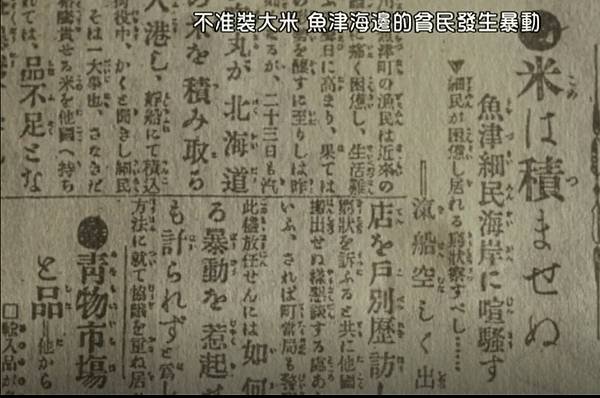 不准裝大米 魚津海邊的貧民發生暴動
米は積ませぬ
魚津細民海岸に喧騒す
▼細民が困憊し居れる窮状察すべし……
＝滊船空しく出
魚津町の漁民は近來の
痛く困憊し、生活難
日に高まり、果ては
を釀すに至りしは昨
丸が北海道
るが、二十三日も汽
米を積み取る
入港し、艀船にて積込
荷役中、かくと聞きし細民
は一大事也、さなきだ
騰貴せる米を他國へ持ち
れては、品不足とな
店を戸別歴訪し
窮状を訴ふると共に他國
搬出せぬ樣懇談する處あ
いふ、されば町當局も警
此儘放任せんには如何
る暴動を惹起
も計られずと爲し
方法に就て協議を重ね居
靑物市塲
と品＝他から
□輸入品が